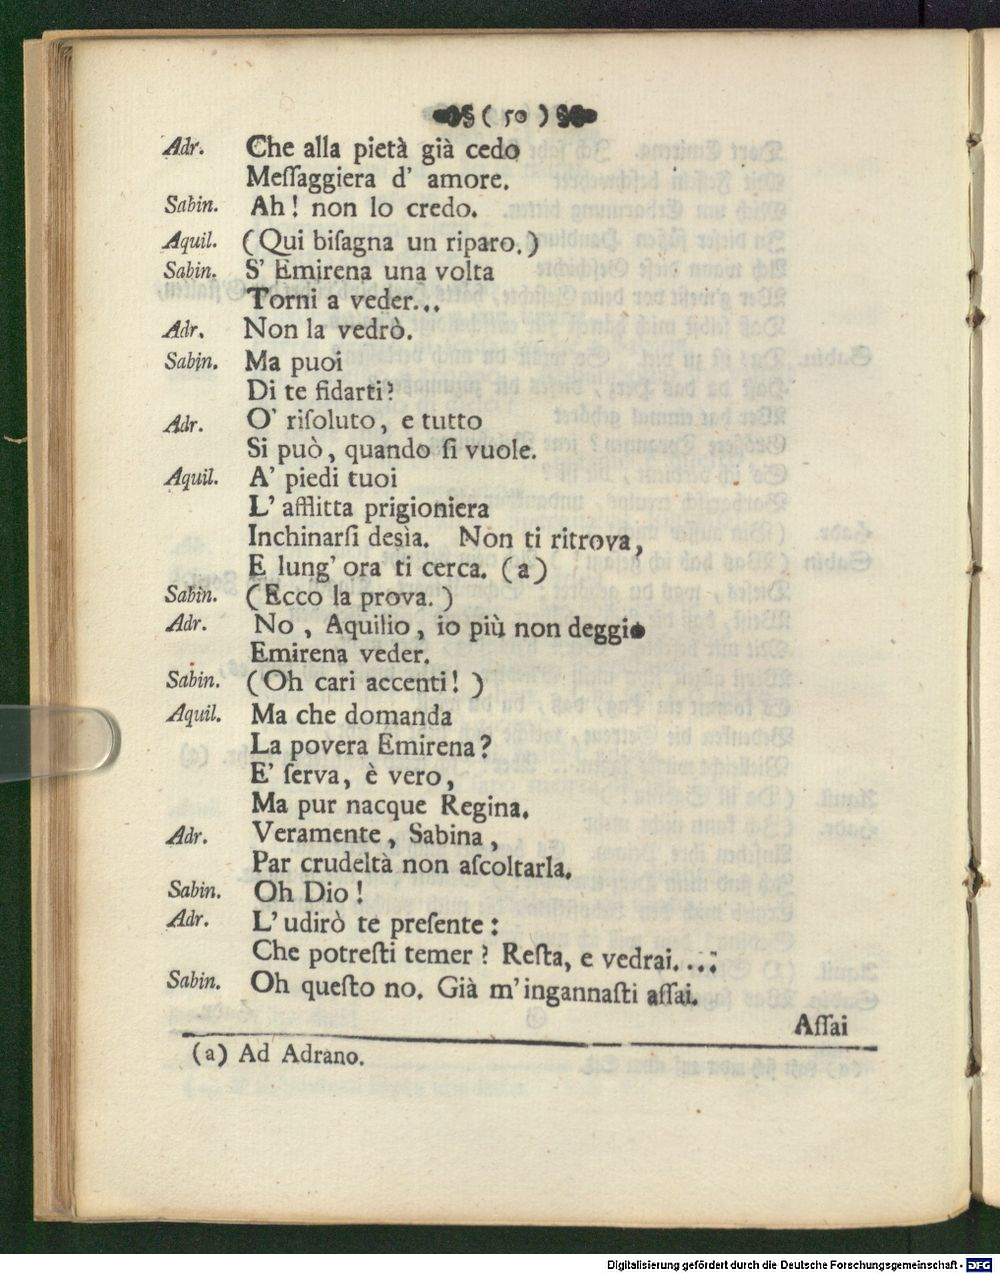 ( 50 )
Adr. Che alla pietà già cedo
Meſſaggiera d' amore.
Sabin. Ah! non lo credo.
Aquil. (Qui biſagna un riparo.)
Sabin. S' Emirena una volta
Torni a veder...
Adr. Non la vedrò.
Sabin. Ma puoi
Di te fidarti?
Adr. O' riſoluto, e tutto
Si può, quando ſi vuole.
Aquil. A' piedi tuoi
L' afflitta prigioniera
Inchinarſi desìa. Non ti ritrova,
E lung' ora ti cerca. (a)
Sabin. (Ecco la prova.)
Adr. No, Aquilio, io più non deggio
Emirena veder.
Sabin. (Oh cari accenti!)
Aquil. Ma che domanda
La povera Emirena?
E' ſerva, è vero,
Ma pur nacque Regina.
Adr. Veramente, Sabina,
Par crudeltà non aſcoltarla.
Sabin. Oh Dio!
Adr. L' udirò te preſente:
Che potreſti temer? Reſta, e vedrai....
Sabin. Oh queſto no. Già m'ingannaſti aſſai.
Aſſai
(a) Ad Adrano.
Digitalisierung gefördert durch die Deutsche Forschungsgemeinschaft - DFG